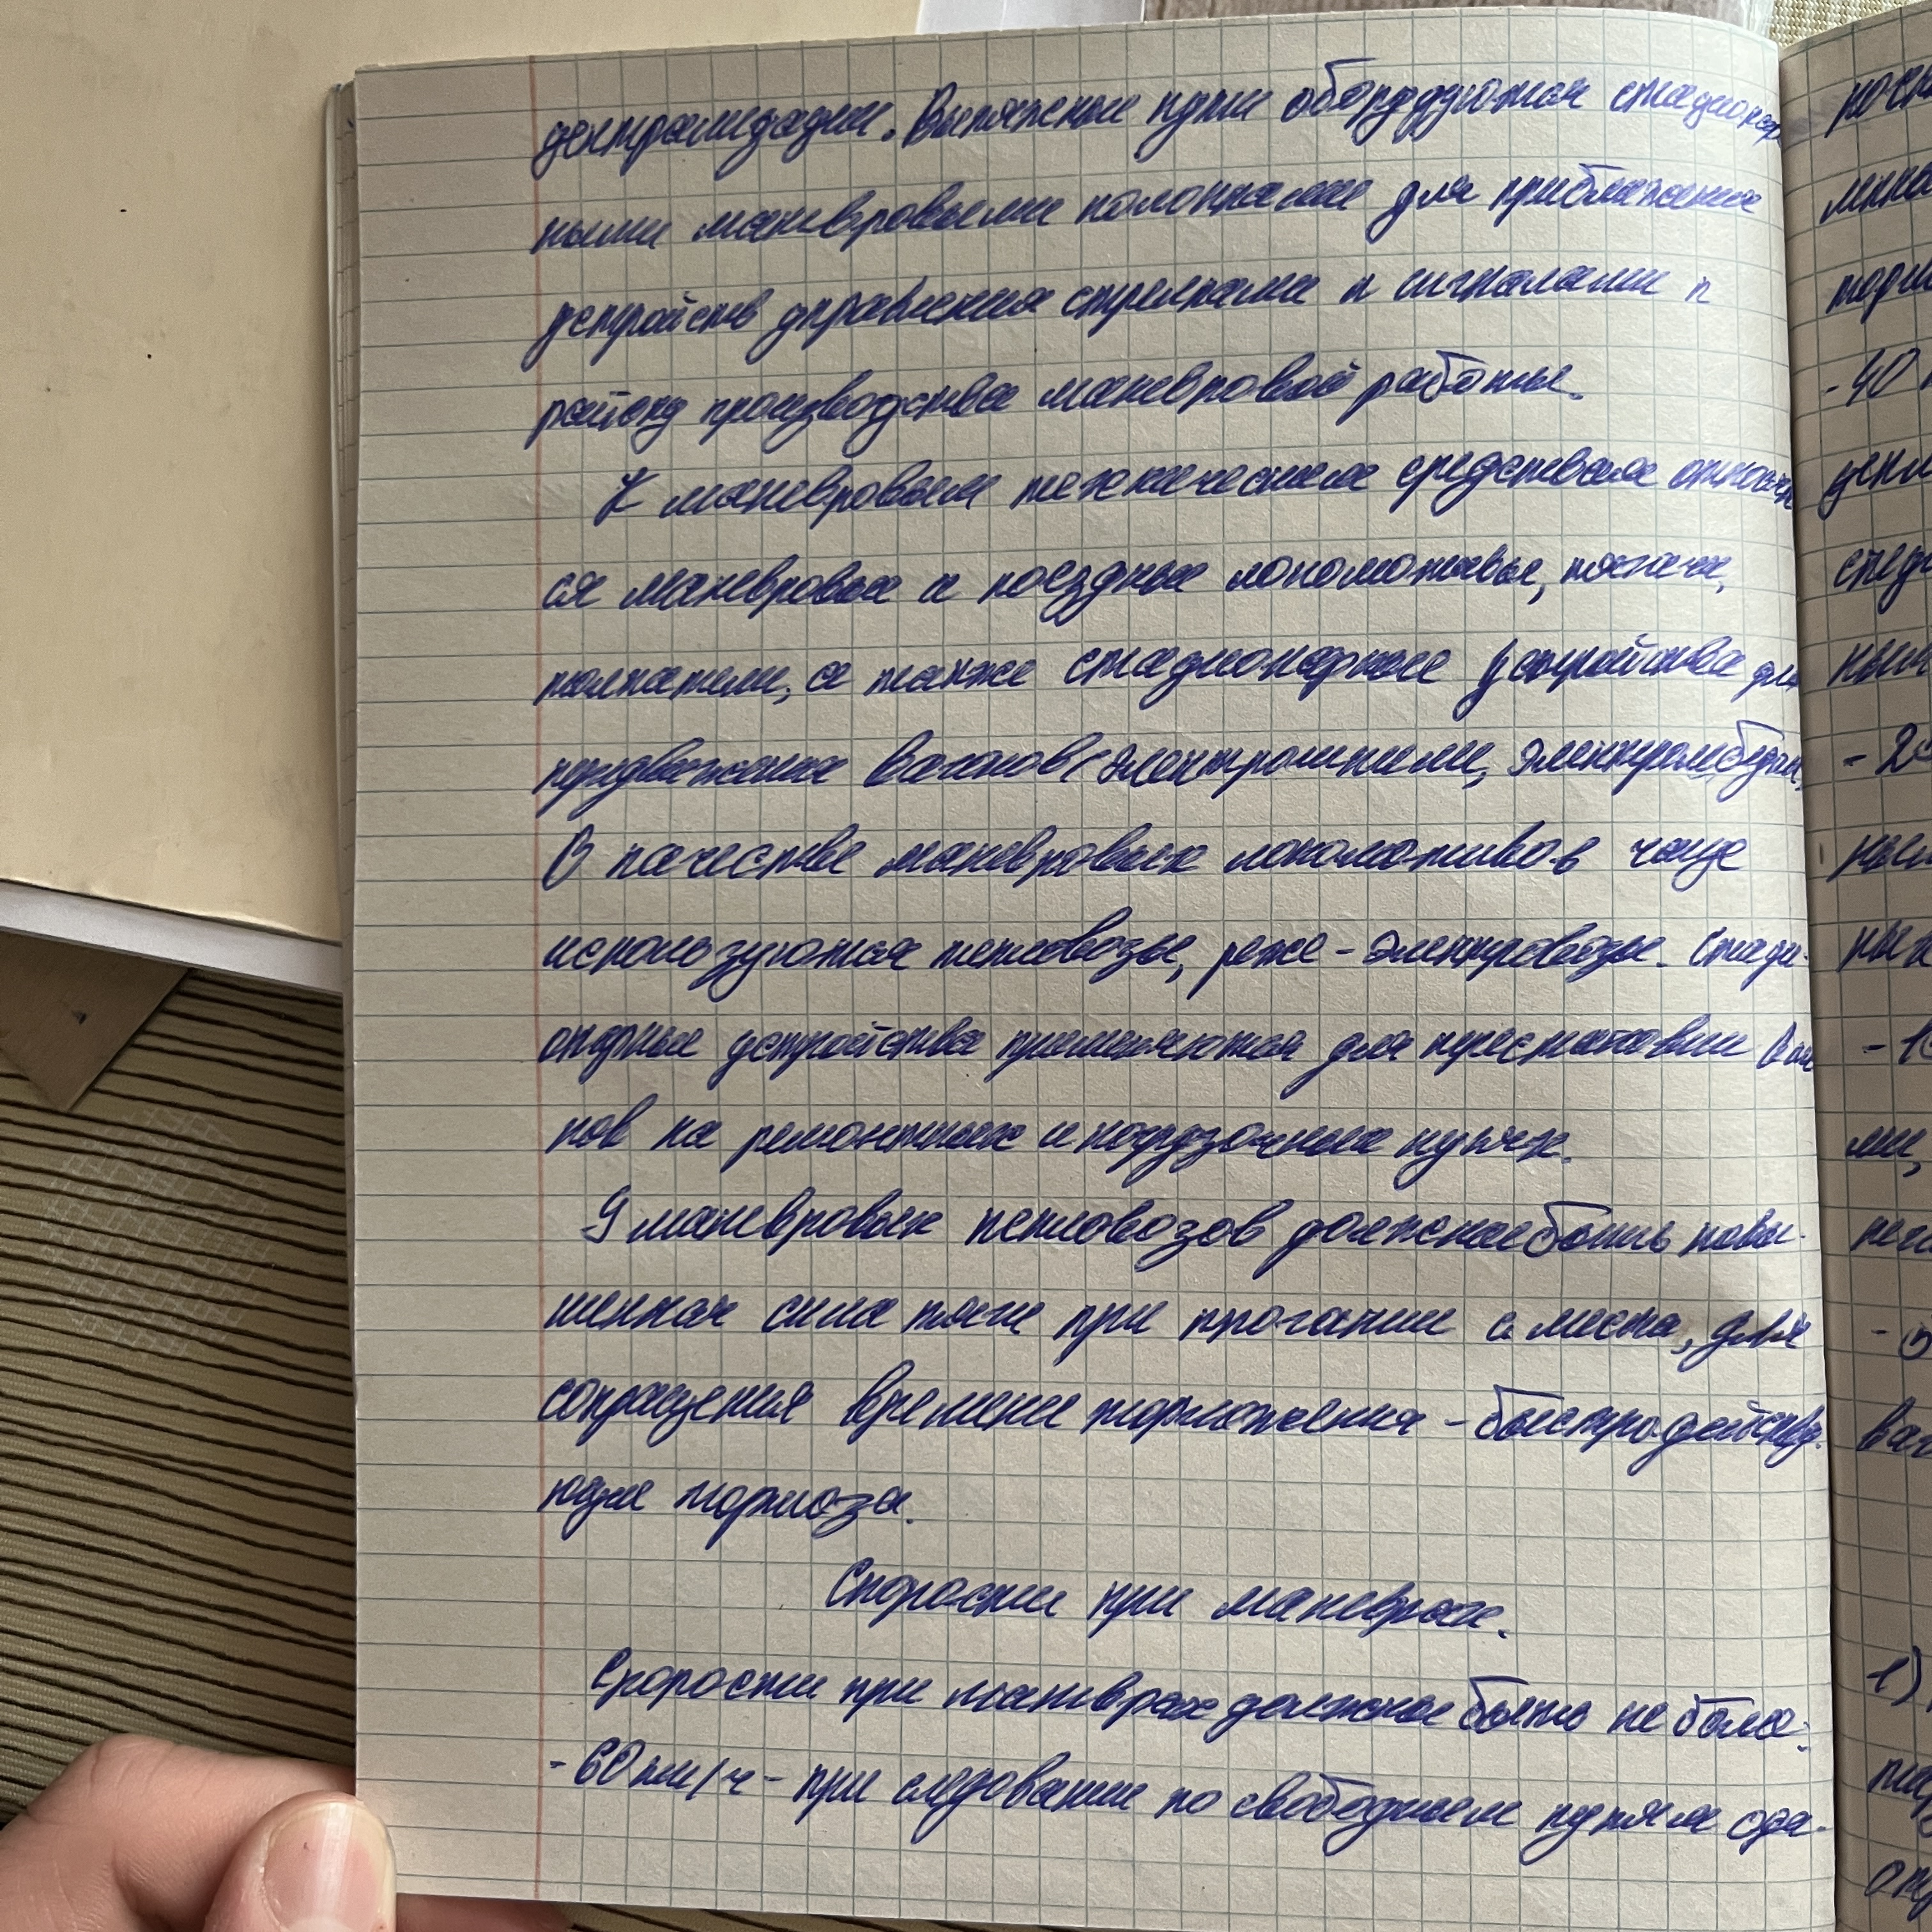 централизации. Вытяжные пути оборудуются стационар
ными маневровыми колонками для приближения
устройств управления стрелками и сигналами к
району производства маневровой работы.
К маневровым техническим средствам относят
ся маневровые и поездные локомотивы, тягачи,
толкатели, а также стационарные устройства для
передвижения вагонов (электрошпили,
В качестве маневровых локомотивов чаще
используются тепловозы, реже - электровозы. Стаци-
онарные устройства применяются для перестановки ваго
нов на ремонтных и погрузочных путях.
У маневровых тепловозов должна быть повы-
шенная сила тяги при трогании с места, для
сокращения времени торможения - быстродейству-
ющие тормоза.
Скорости при маневрах.
Скорости при маневрах должны быть не более:
- 60 км/ч - при следовании по свободным путям оди-
- 40
- 2
- 1
1)